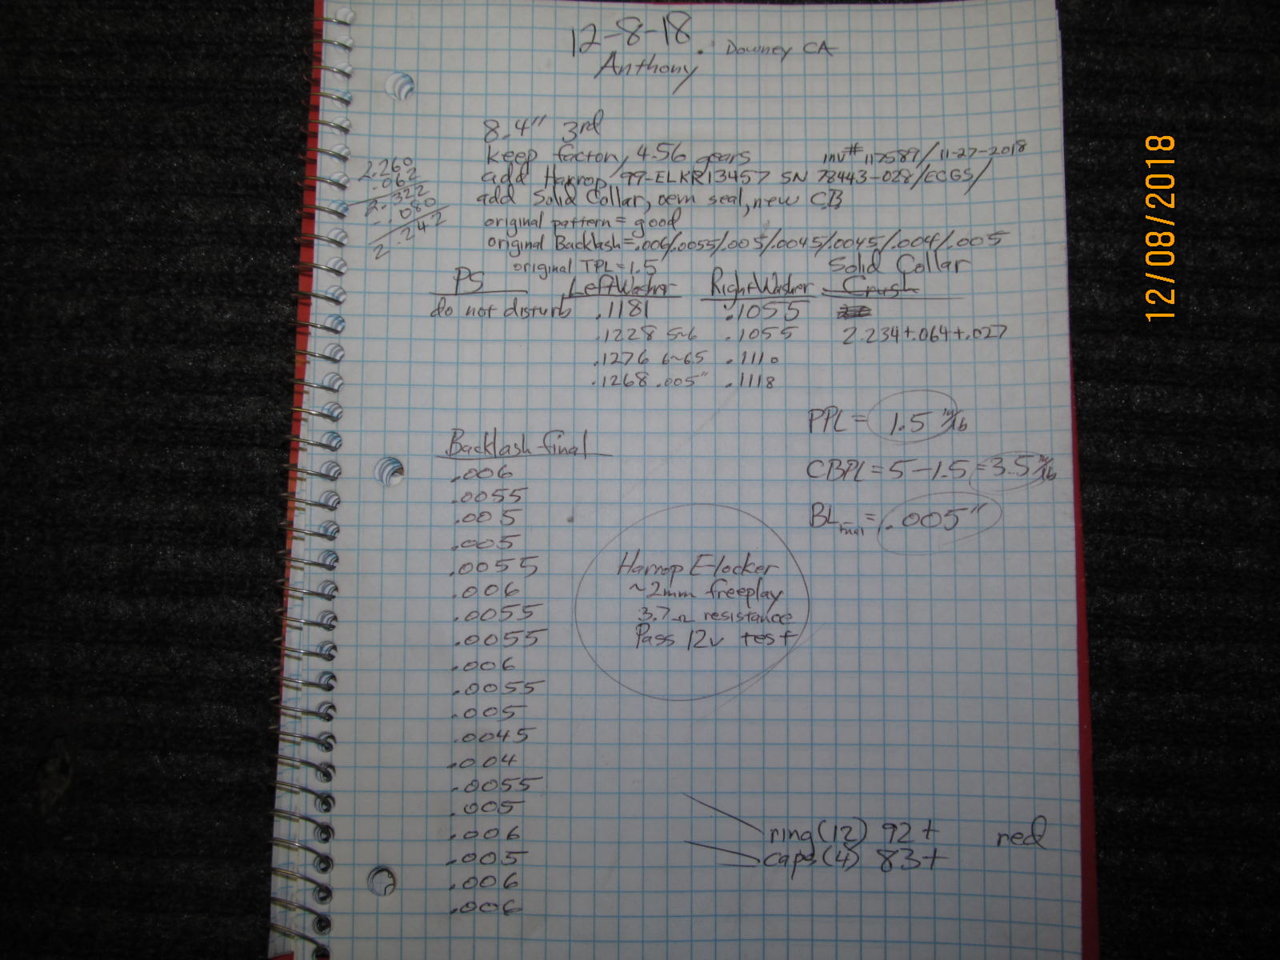 12-8-18. Downey CA
Anthony
8.4" 3rd
keep factory 4.56 gears inv# 117589/11-27-2018
add Harrop 99-ELKR13457 SN 78443-028/ECGS/
add Solid Collar, oem seal, new CB
original pattern = good
original Backlash = .006/.0055/.005/.0045/.0045/.004/.005
original TPL = 1.5
2.260
.062
2.322
.080
2.242
PS Left Washer Right Washer Solid Collar Crush
do not disturb .1181 .1055
.1228 5-6 .1055 2.234+.064+.027
.1276 6-65 .1110
.1268 .005" .1118
PPL = 1.5 in/lb
CBPL = 5-1.5 = 3.5 in/lb
BL final = .005"
Backlash final
.006
.0055
.005
.005
.0055
.006
.0055
.0055
.006
.0055
.005
.0045
.004
.0055
.005
.006
.005
.006
.006
Harrop E-locker
~2mm freeplay
3.7Ω resistance
Pass 12v test
ring(12) 92+ red
caps(4) 83+
12/08/2018